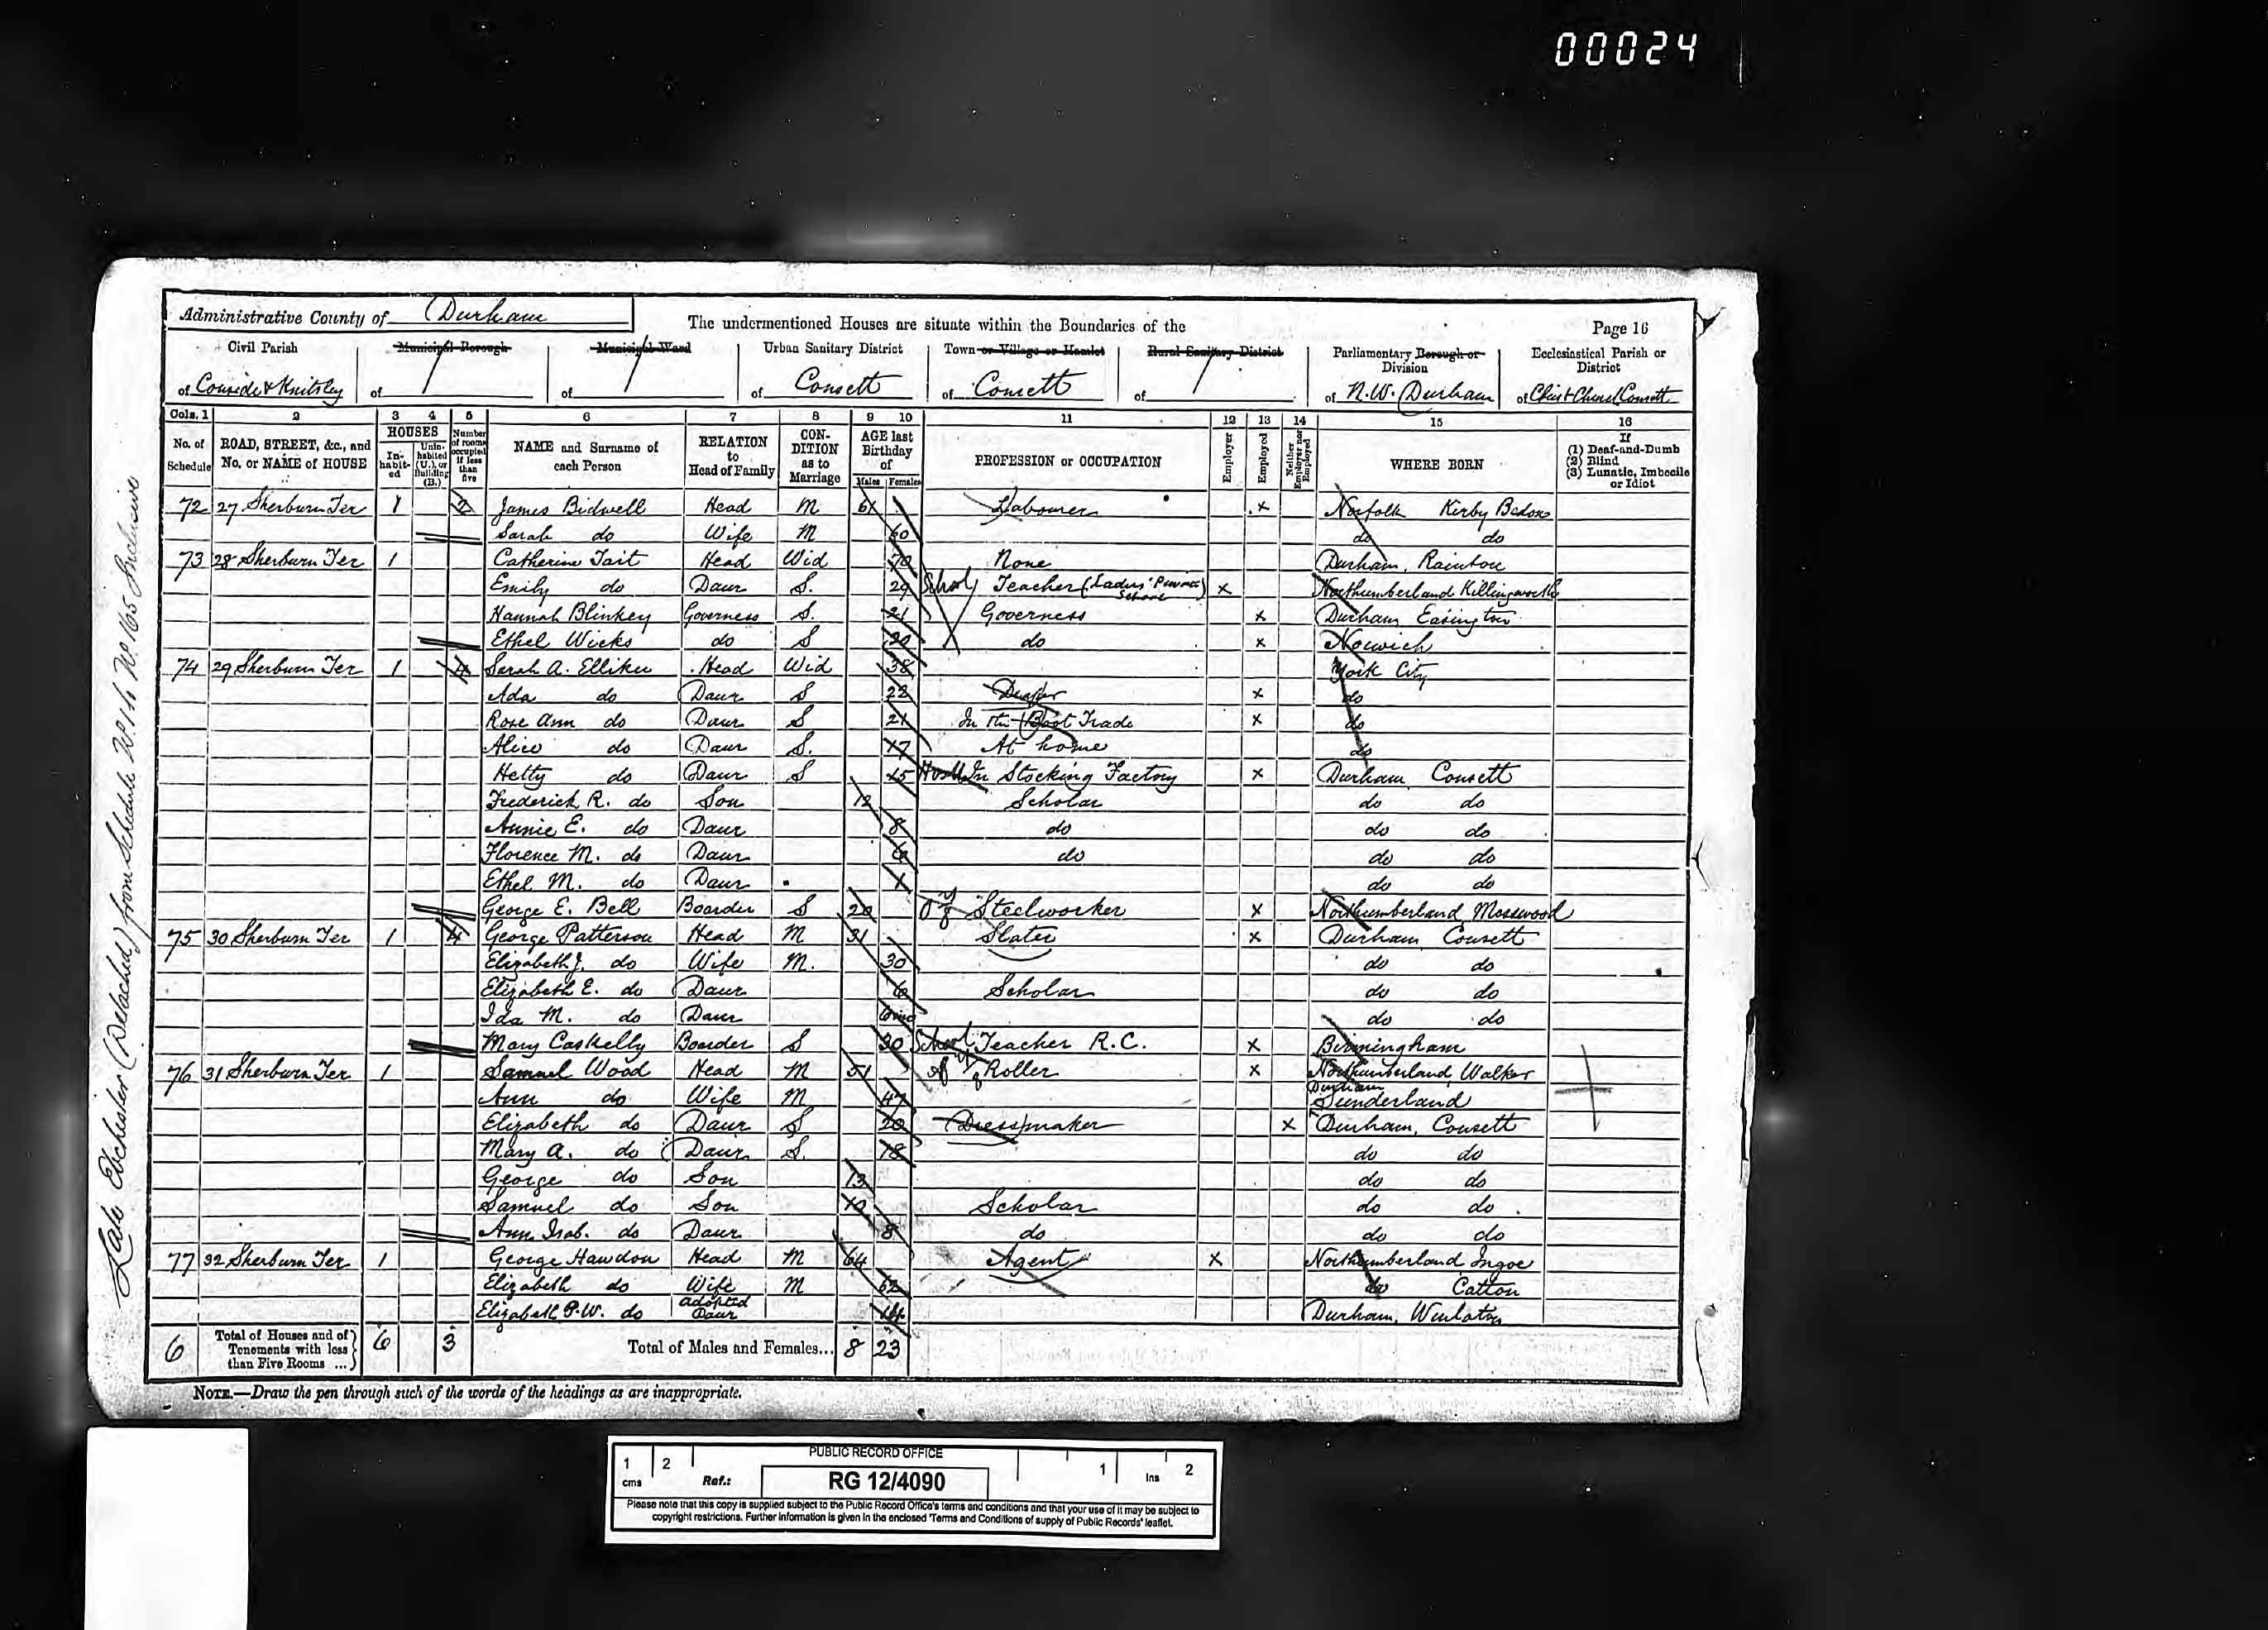 00024
Administrative County of Durham
The undermentioned Houses are situate within the Boundaries of the
Page 16
Civil Parish of Conside & Knitsley
Municipal Borough of
Municipal Ward of
Urban Sanitary District of Consett
Town or Village or Hamlet of Consett
Rural Sanitary District of
Parliamentary Borough or Division of N.W. Durham
Ecclesiastical Parish or District of Christ Church Consett
Cols. 1 2 3 4 5 6 7 8 9 10 11 12 13 14 15 16
No. of Schedule
ROAD, STREET, &c., and No. or NAME of HOUSE
HOUSES
In-habit-ed
Unin-habited (U.), or Building (B.)
Number of rooms occupied if less than five
NAME and Surname of each Person
RELATION to Head of Family
CON-DITION as to Marriage
AGE last Birthday of
Males Females
PROFESSION or OCCUPATION
Employer
Employed
Neither Employer nor Employed
WHERE BORN
If
(1) Deaf-and-Dumb
(2) Blind
(3) Lunatic, Imbecile or Idiot
72 27 Sherburn Ter 1 2 James Bidwell Head M 61 Labourer x Norfolk Kirby Bedon
Sarah do Wife M 60 do do
73 28 Sherburn Ter 1 Catherine Tait Head Wid 70 None Durham, Rainton
Emily do Daur S. 29 School Teacher (Ladies' Private School) x Northumberland Killingworth
Hannah Blinkey Governess S. 21 Governess x Durham Easington
Ethel Wicks do S 20 do x Norwich
74 29 Sherburn Ter 1 4 Sarah A. Elliker Head Wid 38 York City
Ada do Daur S 22 Draper x do
Rose Ann do Daur S 21 In the Boot Trade x do
Alice do Daur S. 17 At home do
Hetty do Daur S 15 In Stocking Factory x Durham Consett
Frederick R. do Son 12 Scholar do do
Annie E. do Daur 8 do do do
Florence M. do Daur 6 do do do
Ethel M. do Daur 1 do do
George E. Bell Boarder S 20 Steelworker x Northumberland Mosswood
75 30 Sherburn Ter 1 4 George Patterson Head M 31 Slater x Durham Consett
Elizabeth J. do Wife M. 30 do do
Elizabeth E. do Daur 6 Scholar do do
Ida M. do Daur 6mo do do
Mary Caskelly Boarder S 20 School Teacher R.C. x Birmingham
76 31 Sherburn Ter 1 Samuel Wood Head M 51 Roller x Northumberland Walker
Ann do Wife M 47 Durham Sunderland
Elizabeth do Daur S 20 Dressmaker x Durham, Consett
Mary A. do Daur S. 18 do do
George do Son 13 do do
Samuel do Son 10 Scholar do do
Ann Isab. do Daur 8 do do do
77 32 Sherburn Ter 1 George Hawdon Head M 64 Agent x Northumberland Ingoe
Elizabeth do Wife M 62 do Catton
Elizabeth P.W. do adopted Daur 14 Durham, Winlaton
6 Total of Houses and of Tenements with less than Five Rooms ... 6 3 Total of Males and Females... 8 23
NOTE.—Draw the pen through such of the words of the headings as are inappropriate.
Late Ebchester (Detached) from Schedule No. 1 to No. 165 Inclusive
PUBLIC RECORD OFFICE
1 2 1 2
cms Ref.: RG 12/4090 Ins
Please note that this copy is supplied subject to the Public Record Office's terms and conditions and that your use of it may be subject to
copyright restrictions. Further information is given in the enclosed 'Terms and Conditions of supply of Public Records' leaflet.